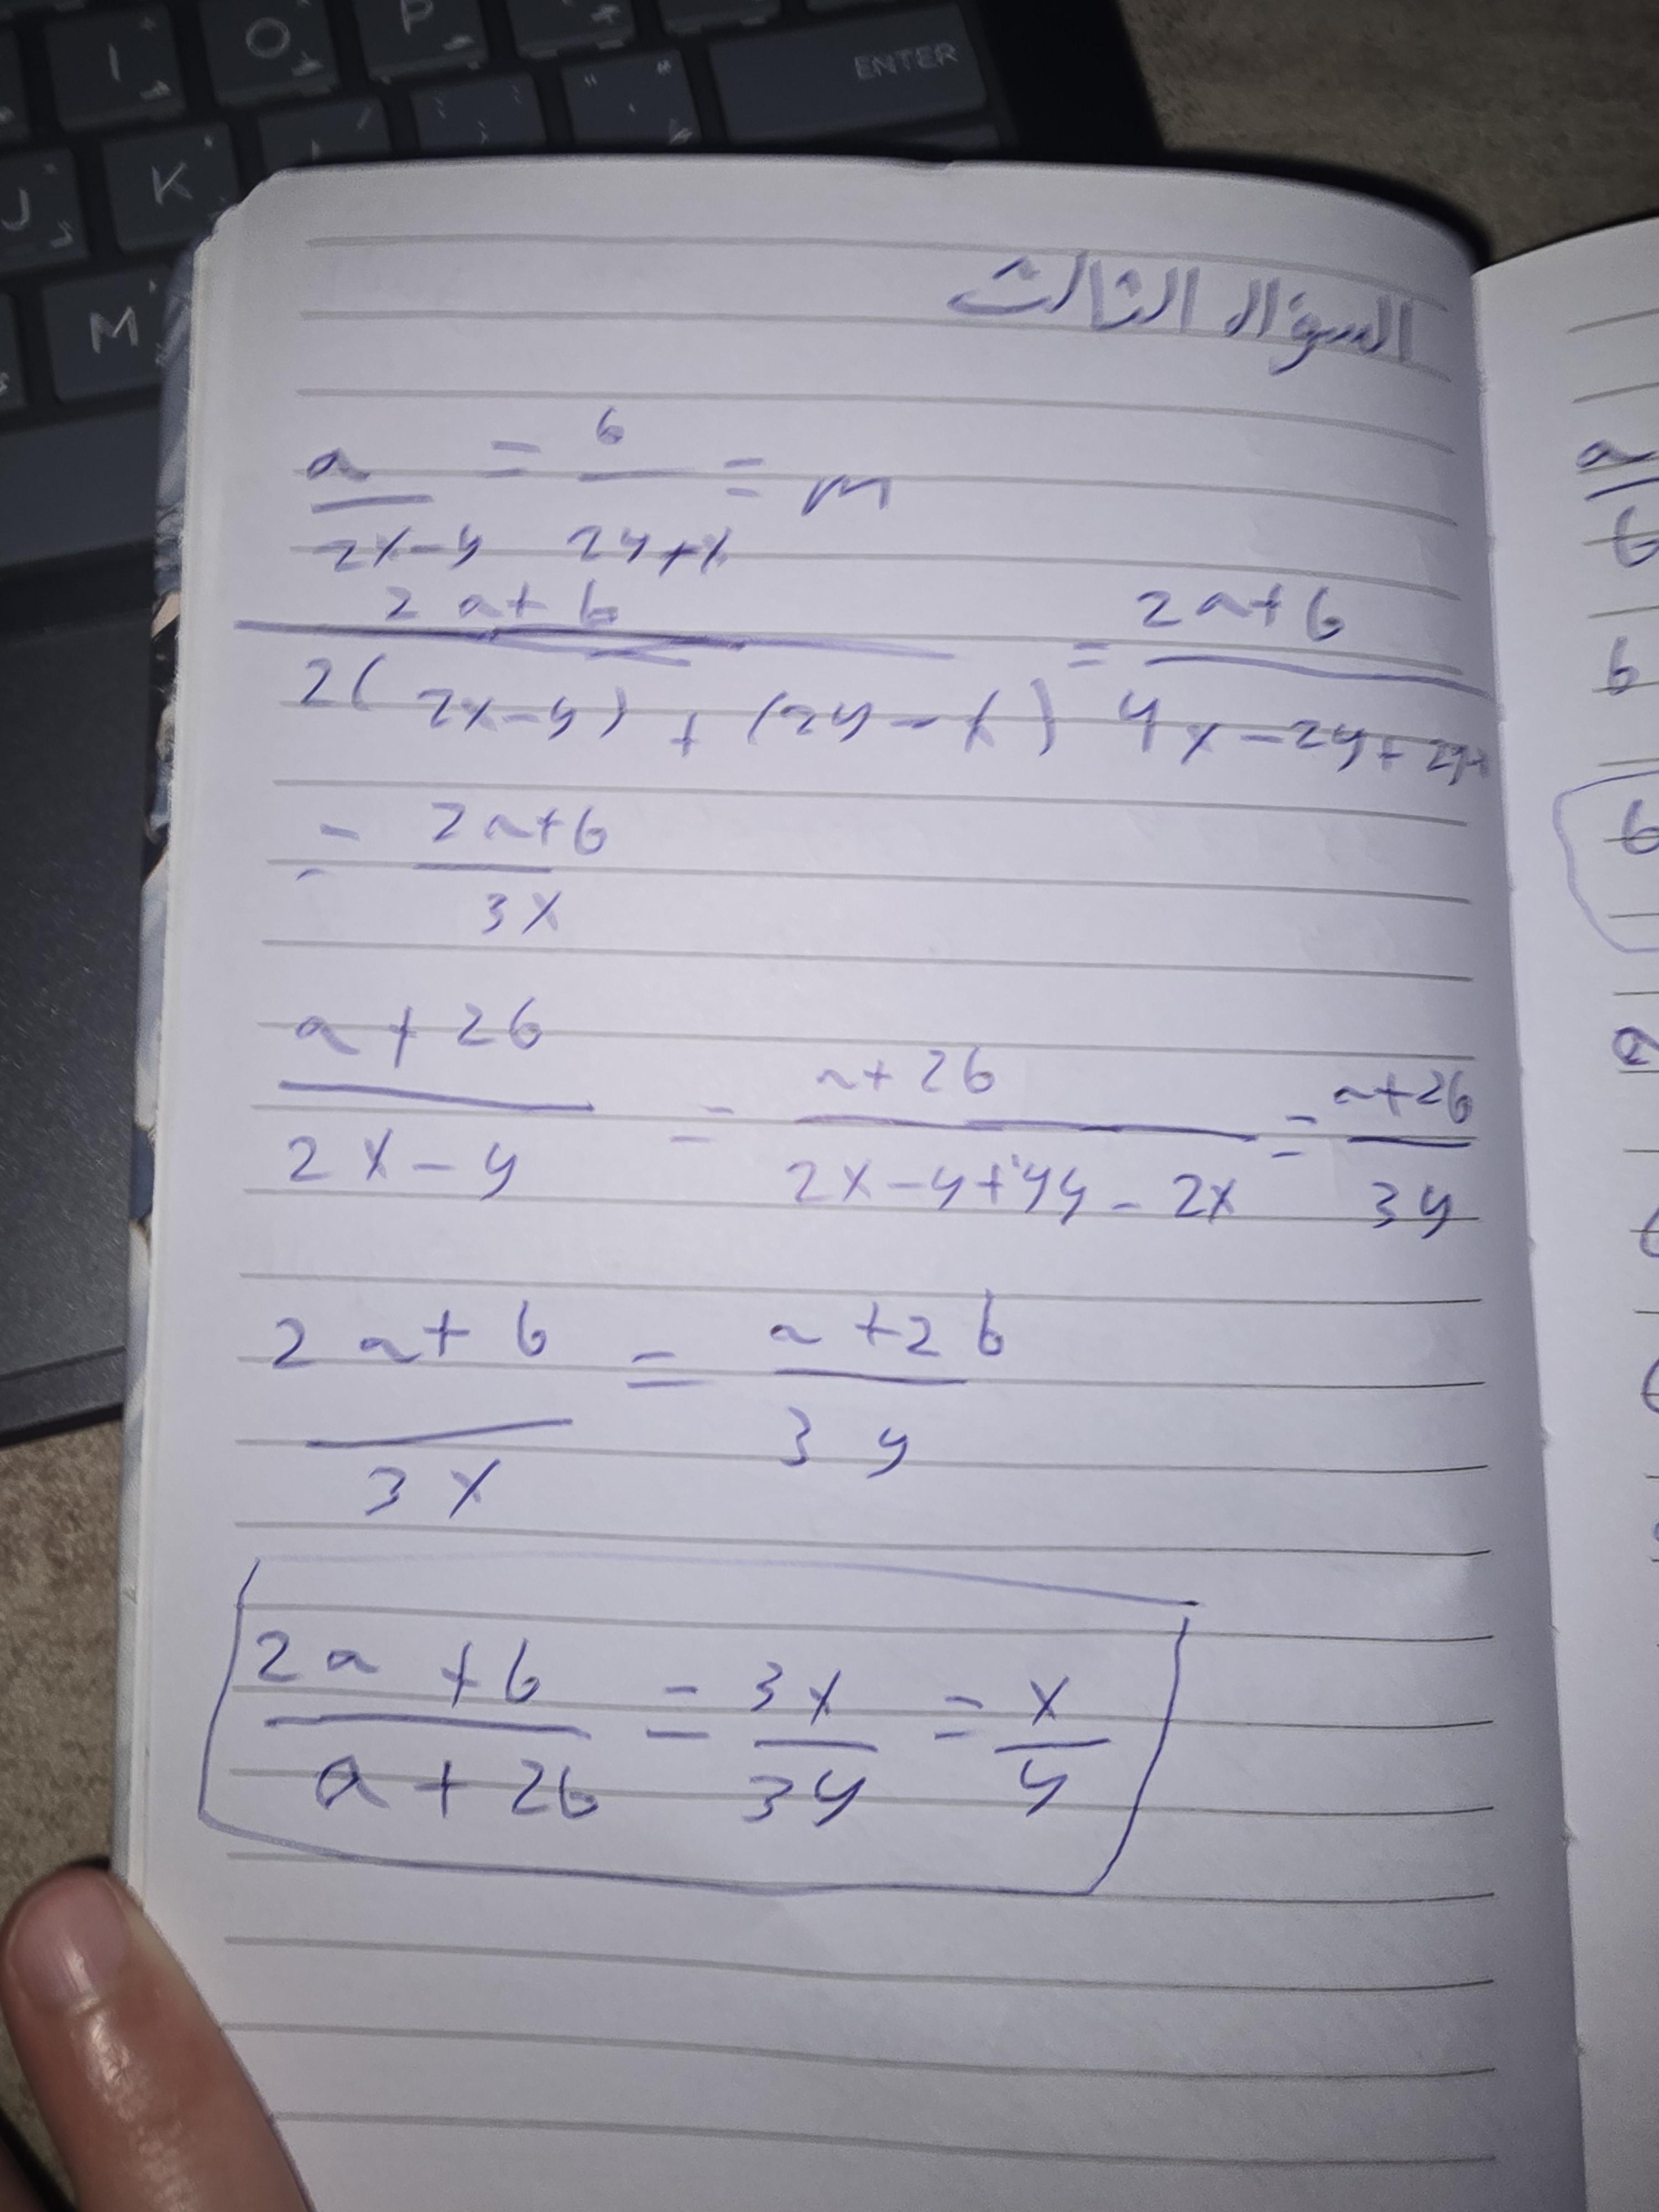 I O P ENTER
J K
M
السؤال الثالث
a/(2x-y) = b/(2y+x) = m
(2a+b)/(2(2x-y)+(2y-x)) = (2a+b)/(4x-2y+2y-
= (2a+b)/(3x)
(a+2b)/(2x-y) = (a+2b)/(2x-y+4y-2x) = (a+2b)/(3y)
(2a+b)/(3x) = (a+2b)/(3y)
(2a+b)/(a+2b) = 3x/3y = x/y